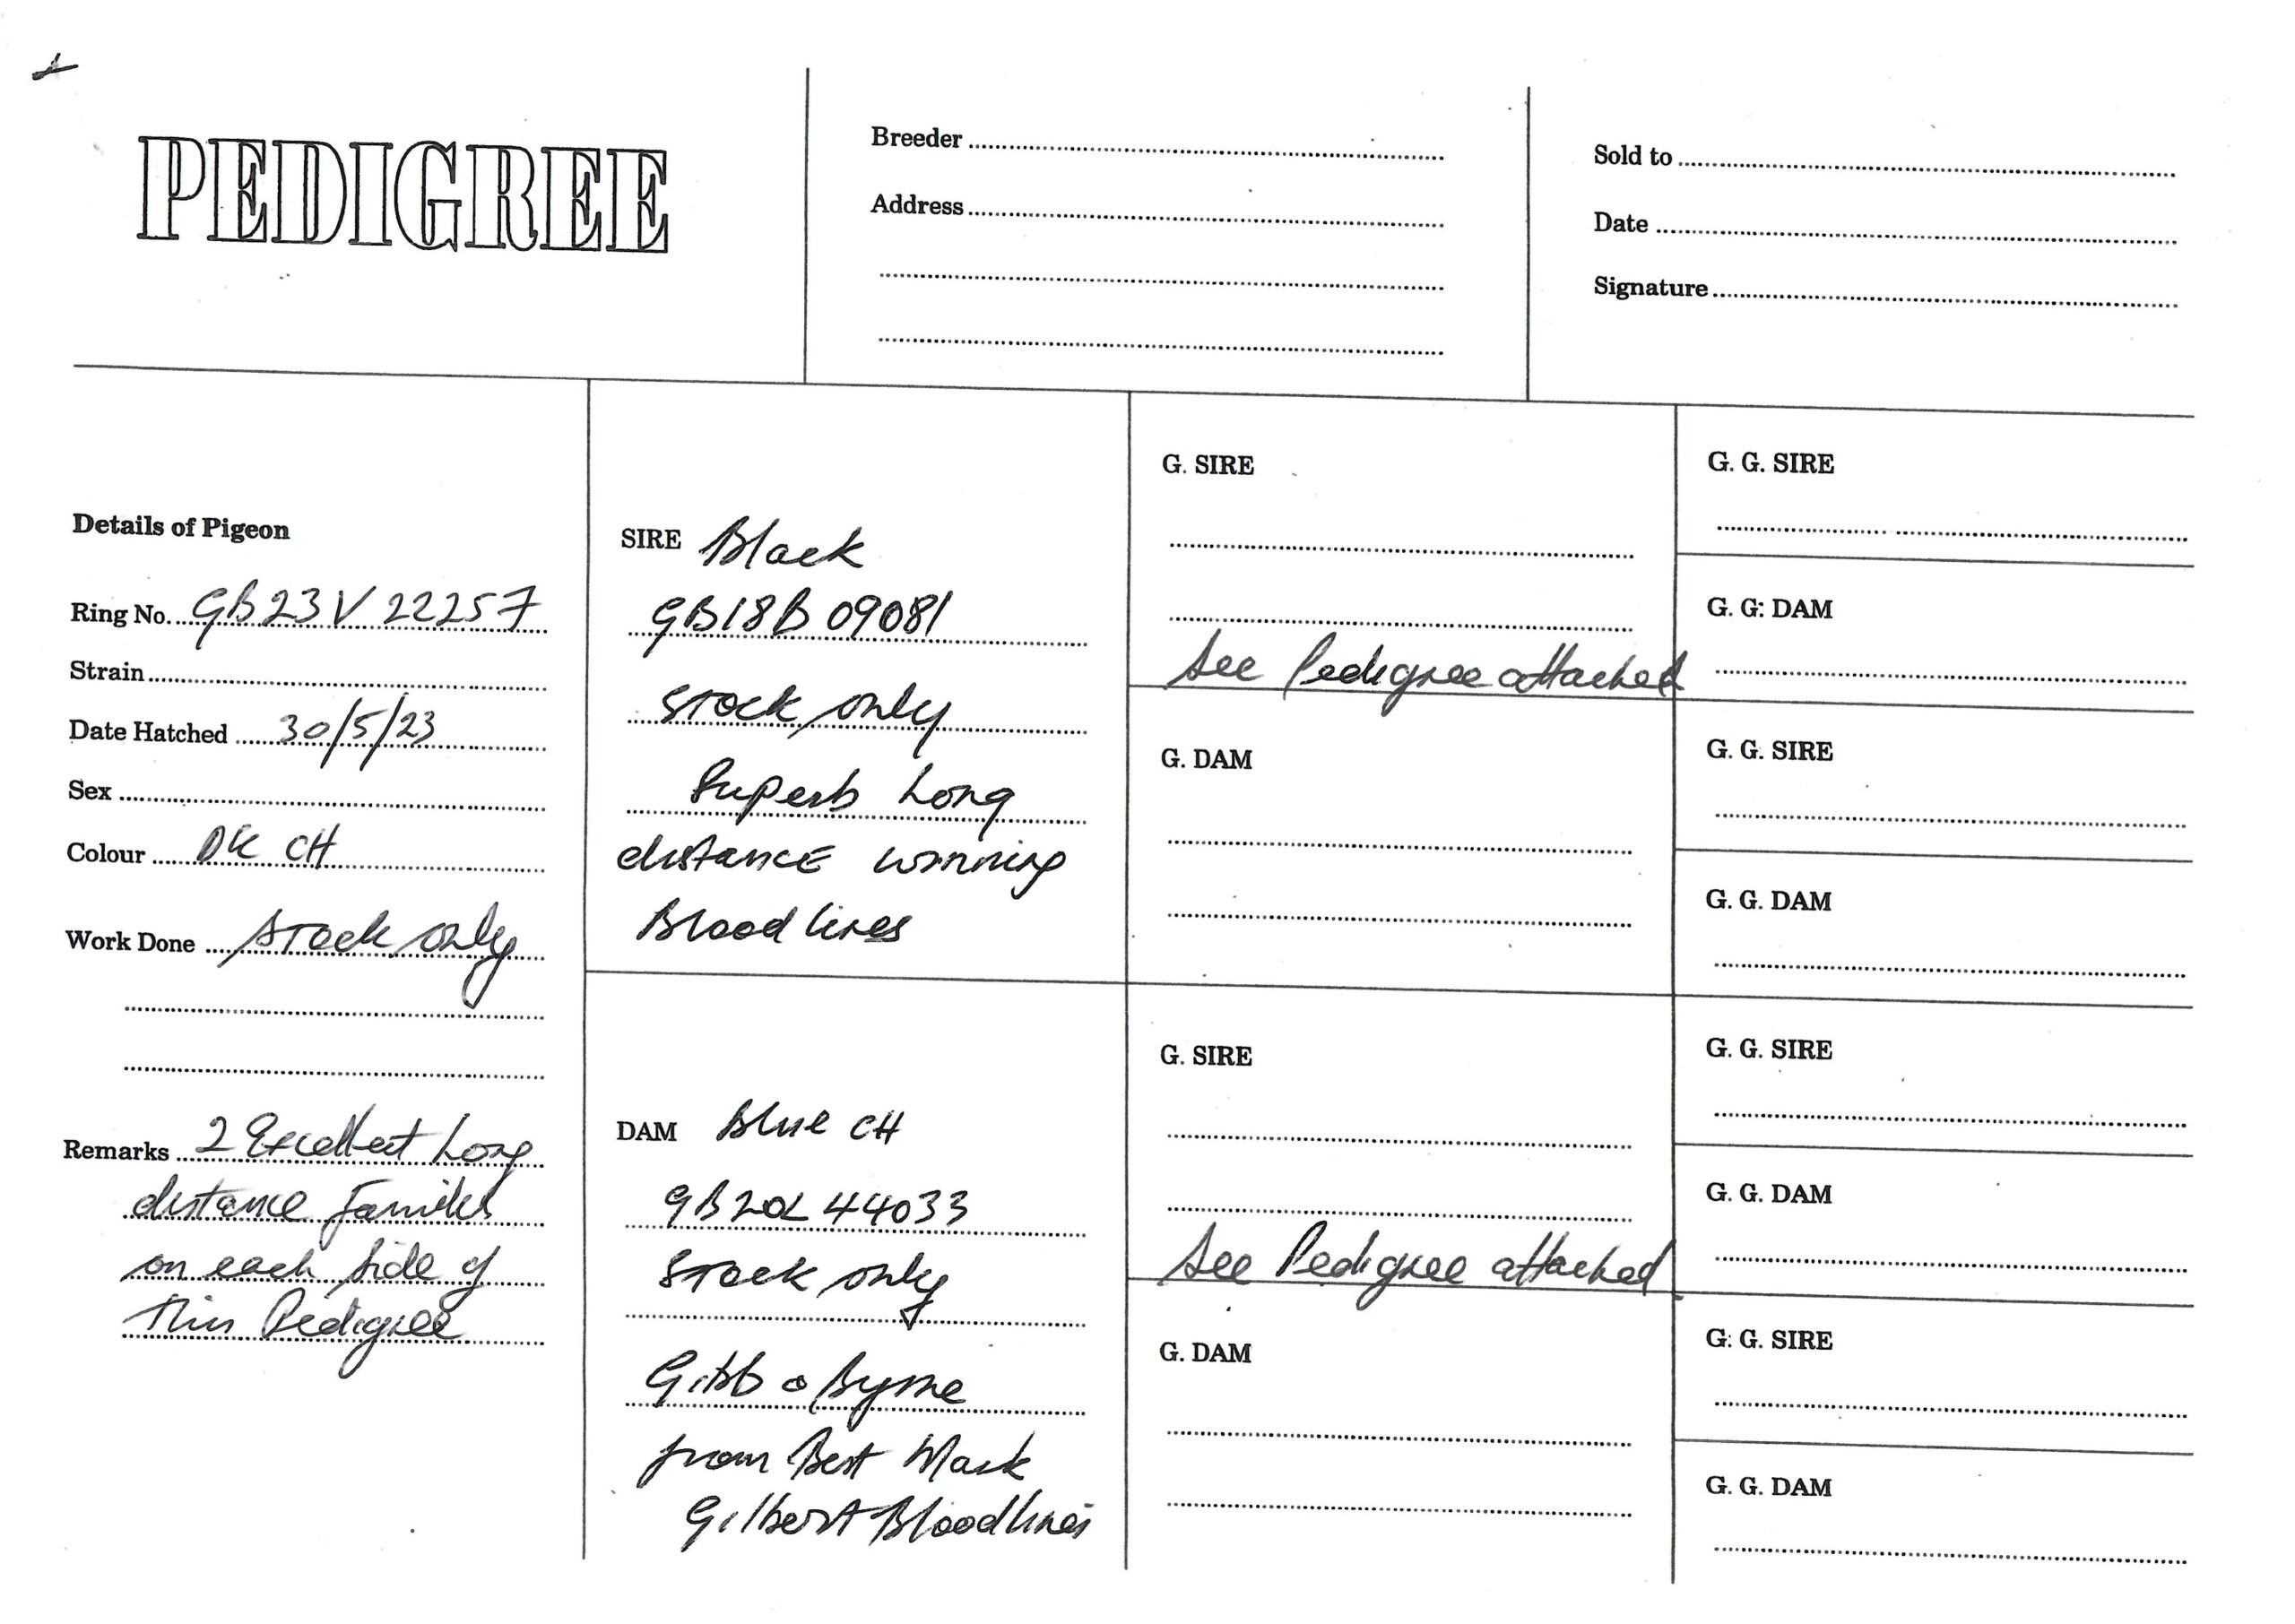 PEDIGREE
Breeder
Address
Sold to
Date
Signature
Details of Pigeon
Ring No. GB23V22257
Strain
Date Hatched 30/5/23
Sex
Colour DK CH
Work Done Stock only
Remarks 2 Excellent Long
distance families
on each side of
this Pedigree
SIRE Black
GB18B09081
Stock only
Superb Long
distance winning
Bloodlines
DAM Blue CH
GB20L44033
Stock only
Gibb & Byrne
from Best Mark
Gilbert Bloodlines
G. SIRE
See Pedigree attached
G. DAM
G. SIRE
See Pedigree attached
G. DAM
G. G. SIRE
G. G. DAM
G. G. SIRE
G. G. DAM
G. G. SIRE
G. G. DAM
G. G. SIRE
G. G. DAM